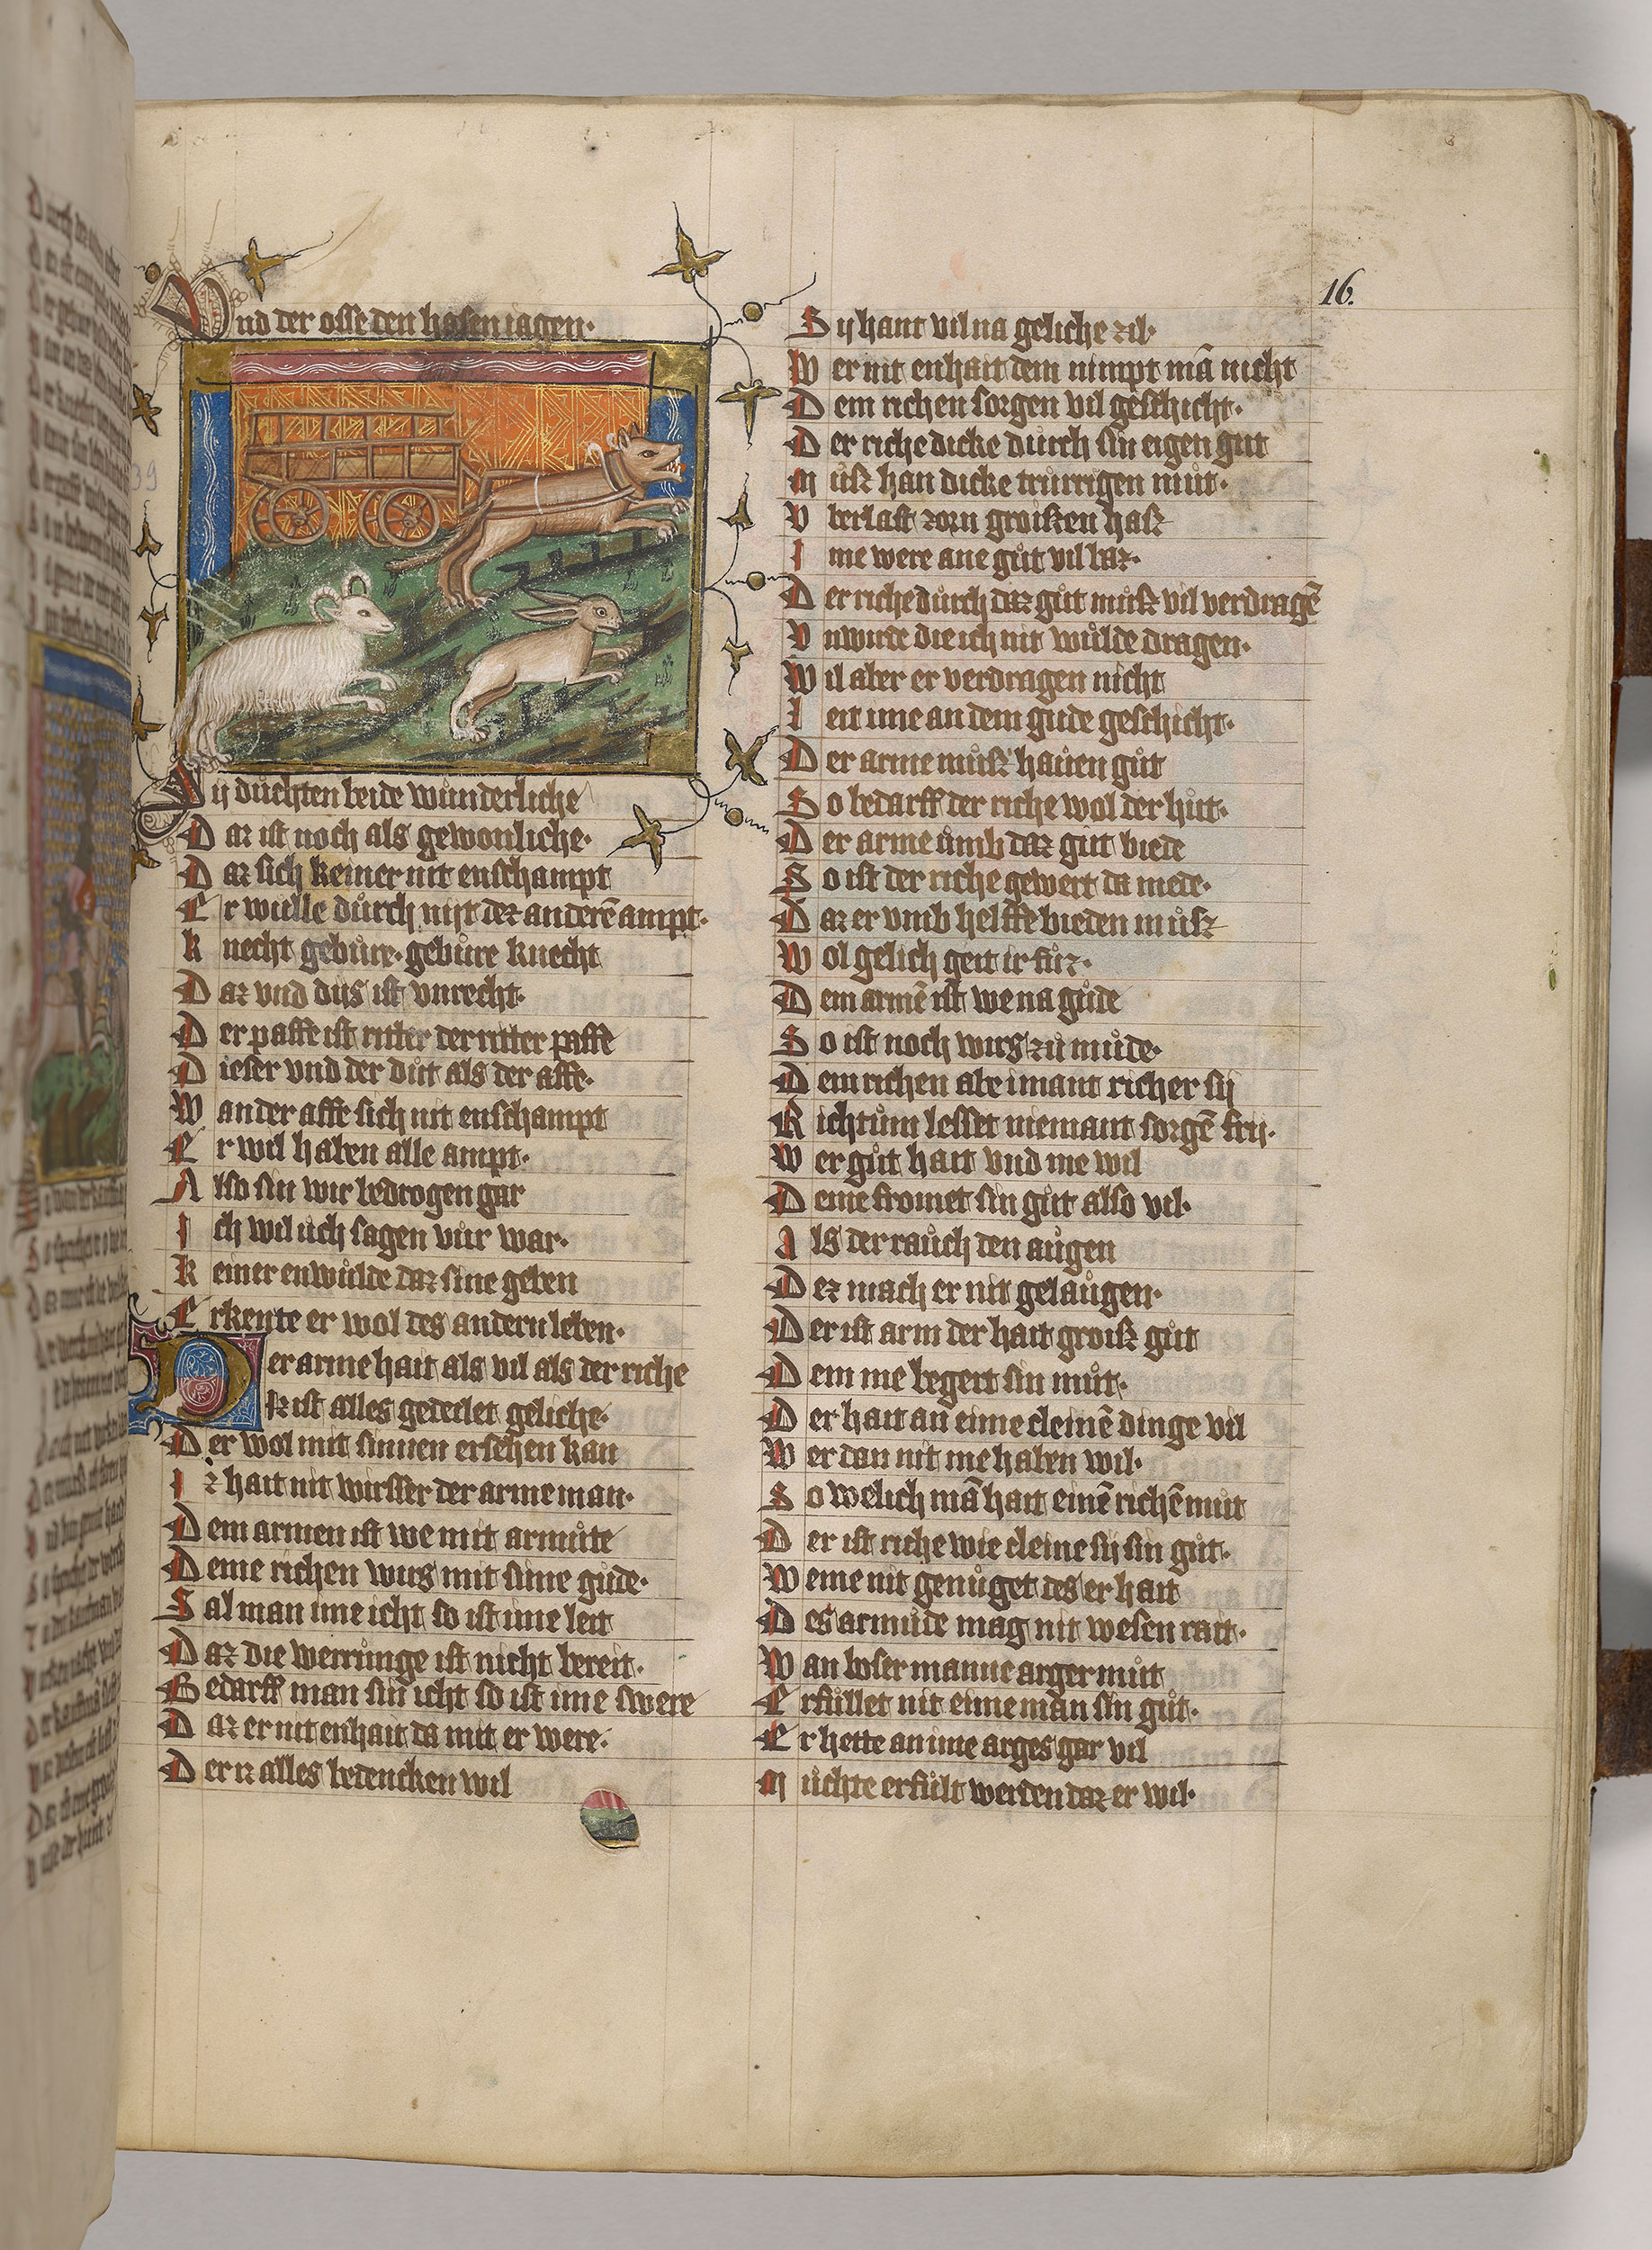 Vnd der osse den hasen iagen·
Sij duchten beide wůnderliche
Daz ist noch als gewonliche·
Daz sich keiner nit enschampt
Er wulle důrch nijt dez anderē ampt·
knecht gebůre· gebůre knecht
Daz vnd dijs ist vnrecht·
Der paffe ist ritter der ritter paffe
Dieser vnd der důt als der affe·
Wan der affe sich nit enschampt
Er wil haben alle ampt·
Also sin wir bedrogen gar
Ich wil uch sagen vůr war·
keiner enwůlde daz sine geben
Erkente er wol des andern leben·
Der arme hait als vil als der riche
Iz ist alles gedeilet geliche·
Der wol mit sinnen ersehen kan
Iz hait nit wirsser der arme man·
Dem armen ist we mit armůte
Deme richen wirs mit sime gůde·
Sal man ime icht so ist ime leit
Daz die werrůnge ist nicht bereit·
Bedarff man sin icht so ist ime swere
Daz er nit enhait da mit er were·
Der iz alles bedencken wil
16.
Sij hant vil na geliche zil·
Wer nit enhait dem nimpt mā nicht
Dem richen sorgen vil geschicht·
Der riche dicke důrch sin eigen gůt
Můsz han dicke trůrrigen můt·
Vberlast zorn groiszen hasz
Ime were ane gůt vil baz·
Der riche důrch daz gůt můsz vil verdragē
Vnwirde die ich nit wůlde dragen·
Wil aber er verdragen nicht
Leit ime an dem gude geschicht·
Der arme můsz haůen gůt
So bedarff der riche wol der hůt·
Der arme ůmb daz gůt biede
So ist der riche gewert da mede·
Daz er vmb helffe bieden můsz
Wol gelich geit ir fůz·
Dem armē ist we na gůde
So ist noch wirs zů můde·
Dem richen abe imant richer sij
Richtům lesset niemant sorgē frij·
Wer gůt hait vnd me wil
Deme fromet sin gůt also vil·
Als der raůch den aůgen
Dez mach er nit gelaůgen·
Der ist arm der hait groisz gůt
Dem me begert sin můt·
Der hait an eime cleinē dinge vil
Wer dan nit me haben wil·
So welich mā hait einē richē můt
Der ist riche wie cleine sij sin gůt·
Weme nit genůget des er hait
Des armůde mag nit wesen rait·
Wan boser manne arger můt
Erfůllet nit eime man sin gůt·
Er hette an ime arges gar vil
Můchte erfůlt werden daz er wil·